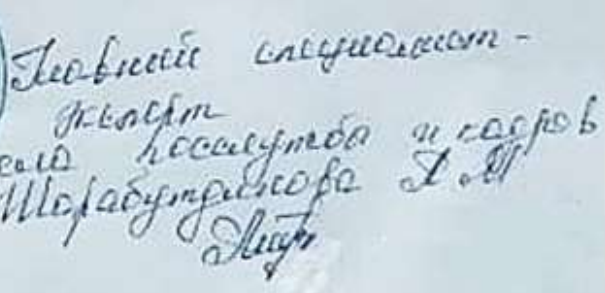 Главный специалист-
эксперт
ела госслужбы и кадров
Шарабутдинова А М